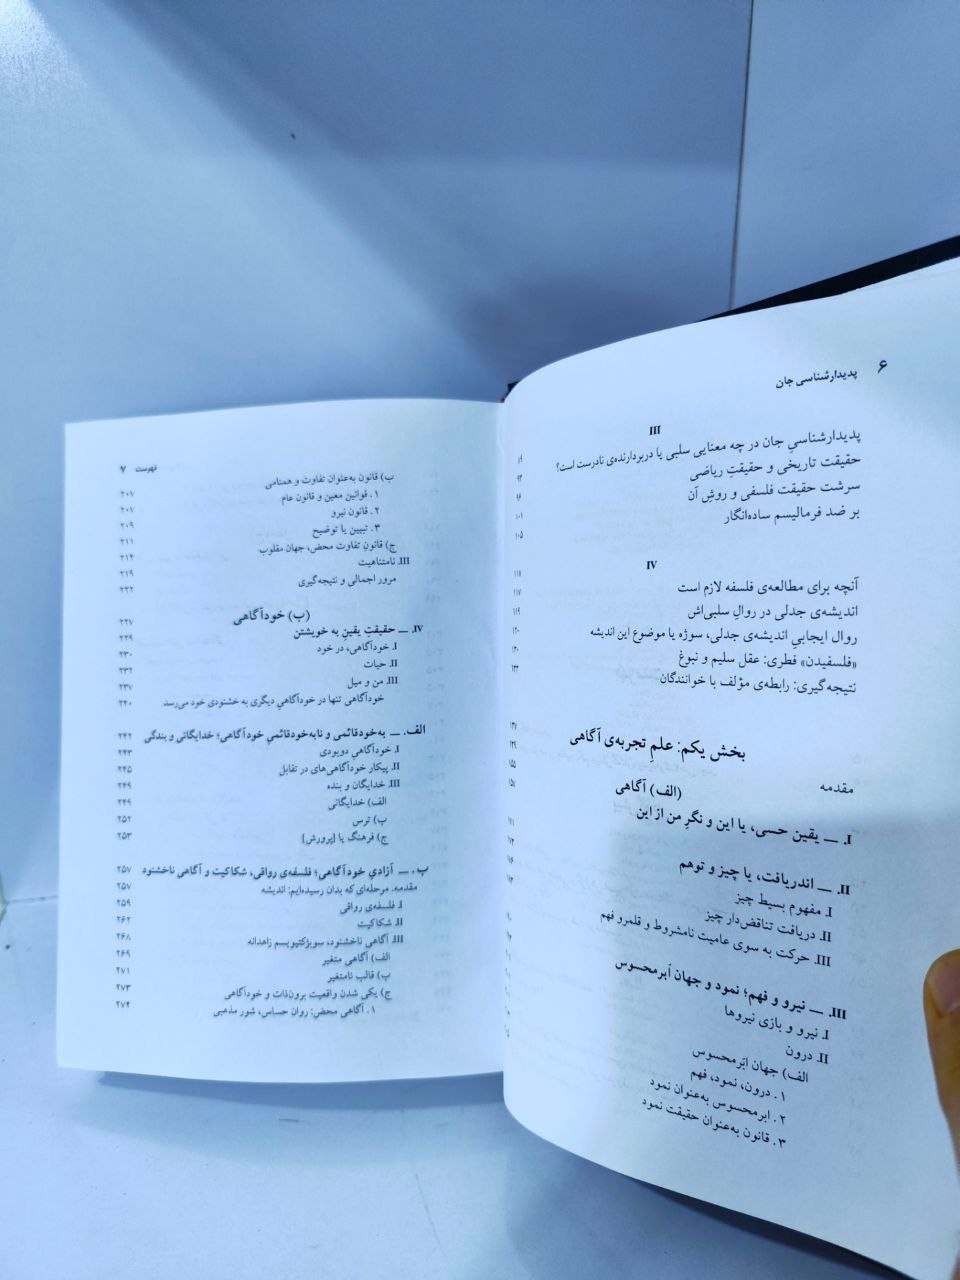 ۶ پدیدارشناسی جان
III
پدیدارشناسیِ جان در چه معنایی سلبی یا دربردارنده‌ی نادرست است؟
حقیقت تاریخی و حقیقتِ ریاضی ۹۳
سرشت حقیقت فلسفی و روشِ آن ۹۶
بر ضد فرمالیسم ساده‌انگار ۱۰۱
۱۰۵
IV ۱۱۷
آنچه برای مطالعه‌ی فلسفه لازم است ۱۱۷
اندیشه‌ی جدلی در روالِ سلبی‌اش ۱۱۹
روال ایجابیِ اندیشه‌ی جدلی، سوژه یا موضوع این اندیشه ۱۲۰
«فلسفیدن» فطری: عقل سلیم و نبوغ ۱۳۰
نتیجه‌گیری: رابطه‌ی مؤلف با خوانندگان ۱۳۳
بخش یکم: علمِ تجربه‌ی آگاهی
مقدمه
(الف) آگاهی
I. ــ یقین حسی، یا این و نگرِ من از این
II. ــ اندریافت، یا چیز و توهم
I. مفهوم بسیط چیز
II. دریافت تناقض‌دار چیز
III. حرکت به سوی عامیت نامشروط و قلمرو فهم
III. ــ نیرو و فهم؛ نمود و جهان اَبرمحسوس
I. نیرو و بازی نیروها
II. درون
الف) جهان ابَرمحسوس
۱. درون، نمود، فهم
۲. ابرمحسوس به‌عنوان نمود
۳. قانون به‌عنوان حقیقت نمود
فهرست ۷
ب) قانون به‌عنوان تفاوت و همنامی ۲۰۷
۱. قوانین معین و قانون عام ۲۰۷
۲. قانون نیرو ۲۰۹
۳. تبیین یا توضیح ۲۱۱
ج) قانونِ تفاوت محض، جهان مقلوب ۲۱۴
III. نامتناهیت ۲۱۹
مرور اجمالی و نتیجه‌گیری ۲۲۲
(ب) خودآگاهی ۲۲۷
IV. ــ حقیقتِ یقینِ به خویشتن ۲۲۹
I. خودآگاهی، در خود ۲۳۰
II. حیات ۲۳۲
III. من و میل ۲۳۷
خودآگاهی تنها در خودآگاهیِ دیگری به خشنودی خود می‌رسد ۲۴۰
الف. ــ به‌خودقائمی و نابه‌خودقائمیِ خودآگاهی؛ خدایگانی و بندگی ۲۴۲
I. خودآگاهیِ دوبودی ۲۴۳
II. پیکار خودآگاهی‌های در تقابل ۲۴۵
III. خدایگان و بنده ۲۴۹
الف) خدایگانی ۲۴۹
ب) ترس ۲۵۲
ج) فرهنگ یا [پرورش] ۲۵۳
ب. ــ آزادیِ خودآگاهی؛ فلسفه‌ی رواقی، شکاکیت و آگاهی ناخشنود ۲۵۷
مقدمه. مرحله‌ای که بدان رسیده‌ایم: اندیشه ۲۵۷
I. فلسفه‌ی رواقی ۲۵۹
II. شکاکیت ۲۶۲
III. آگاهی ناخشنود، سوبژکتیویسم زاهدانه ۲۶۸
الف) آگاهی متغیر ۲۶۹
ب) قالب نامتغیر ۲۷۱
ج) یکی شدنِ واقعیت برون‌ذات و خودآگاهی ۲۷۳
۱. آگاهی محض: روان حساس، شور مذهبی ۲۷۴